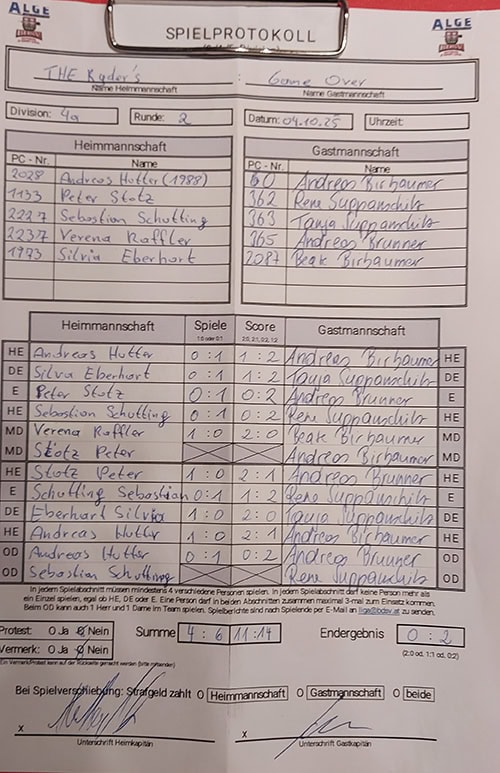 ALGE
ALGE
SPIELPROTOKOLL
THE Ryder's : Game Over
Name Heimmannschaft Name Gastmannschaft
Division: 4a Runde: 2 Datum: 04.10.25 Uhrzeit:
Heimmannschaft Gastmannschaft
PC - Nr. Name PC - Nr. Name
2028 Andreas Hutter (1988) 60 Andreas Birbaumer
1133 Peter Stotz 362 Rene Suppanschitz
2227 Sebastian Schutting 363 Tanja Suppanschitz
2237 Verena Raffler 365 Andreas Brunner
1973 Silvia Eberhart 2087 Beate Birbaumer
Heimmannschaft Spiele Score Gastmannschaft
1:0 oder 0:1 2:0, 2:1, 0:2, 1:2
HE Andreas Hutter 0:1 1:2 Andreas Birbaumer HE
DE Silva Eberhart 0:1 1:2 Tanja Suppanschitz DE
E Peter Stotz 0:1 0:2 Andreas Brunner E
HE Sebastian Schutting 0:1 0:2 Rene Suppanschitz HE
MD Verena Raffler 1:0 2:0 Beate Birbaumer MD
MD Stotz Peter Andreas Birbaumer MD
HE Stotz Peter 1:0 2:1 Andreas Brunner HE
E Schutting Sebastian 0:1 1:2 Rene Suppanschitz E
DE Eberhart Silvia 1:0 2:0 Tanja Suppanschitz DE
HE Andreas Hutter 1:0 2:1 Andreas Birbaumer HE
OD Andreas Hutter 0:1 0:2 Andreas Brunner OD
OD Sebastian Schutting Rene Suppanschitz OD
In jedem Spielabschnitt müssen mindestens 4 verschiedene Personen spielen. In jedem Spielabschnitt darf keine Person mehr als
ein Einzel spielen, egal ob HE, DE oder E. Eine Person darf in beiden Abschnitten zusammen maximal 3-mal zum Einsatz kommen.
Beim OD kann auch 1 Herr und 1 Dame im Team spielen. Spielberichte sind nach Spielende per E-Mail an liga@bdsv.at zu senden.
Protest: O Ja O Nein Summe 4:6 11:14 Endergebnis 0:2
Vermerk: O Ja O Nein (2:0 od. 1:1 od. 0:2)
Ein Vermerk/Protest kann auf der Rückseite gemacht werden (bitte ankreuzen)
Bei Spielverschiebung: Strafgeld zahlt O Heimmannschaft O Gastmannschaft O beide
x x
Unterschrift Heimkapitän Unterschrift Gastkapitän